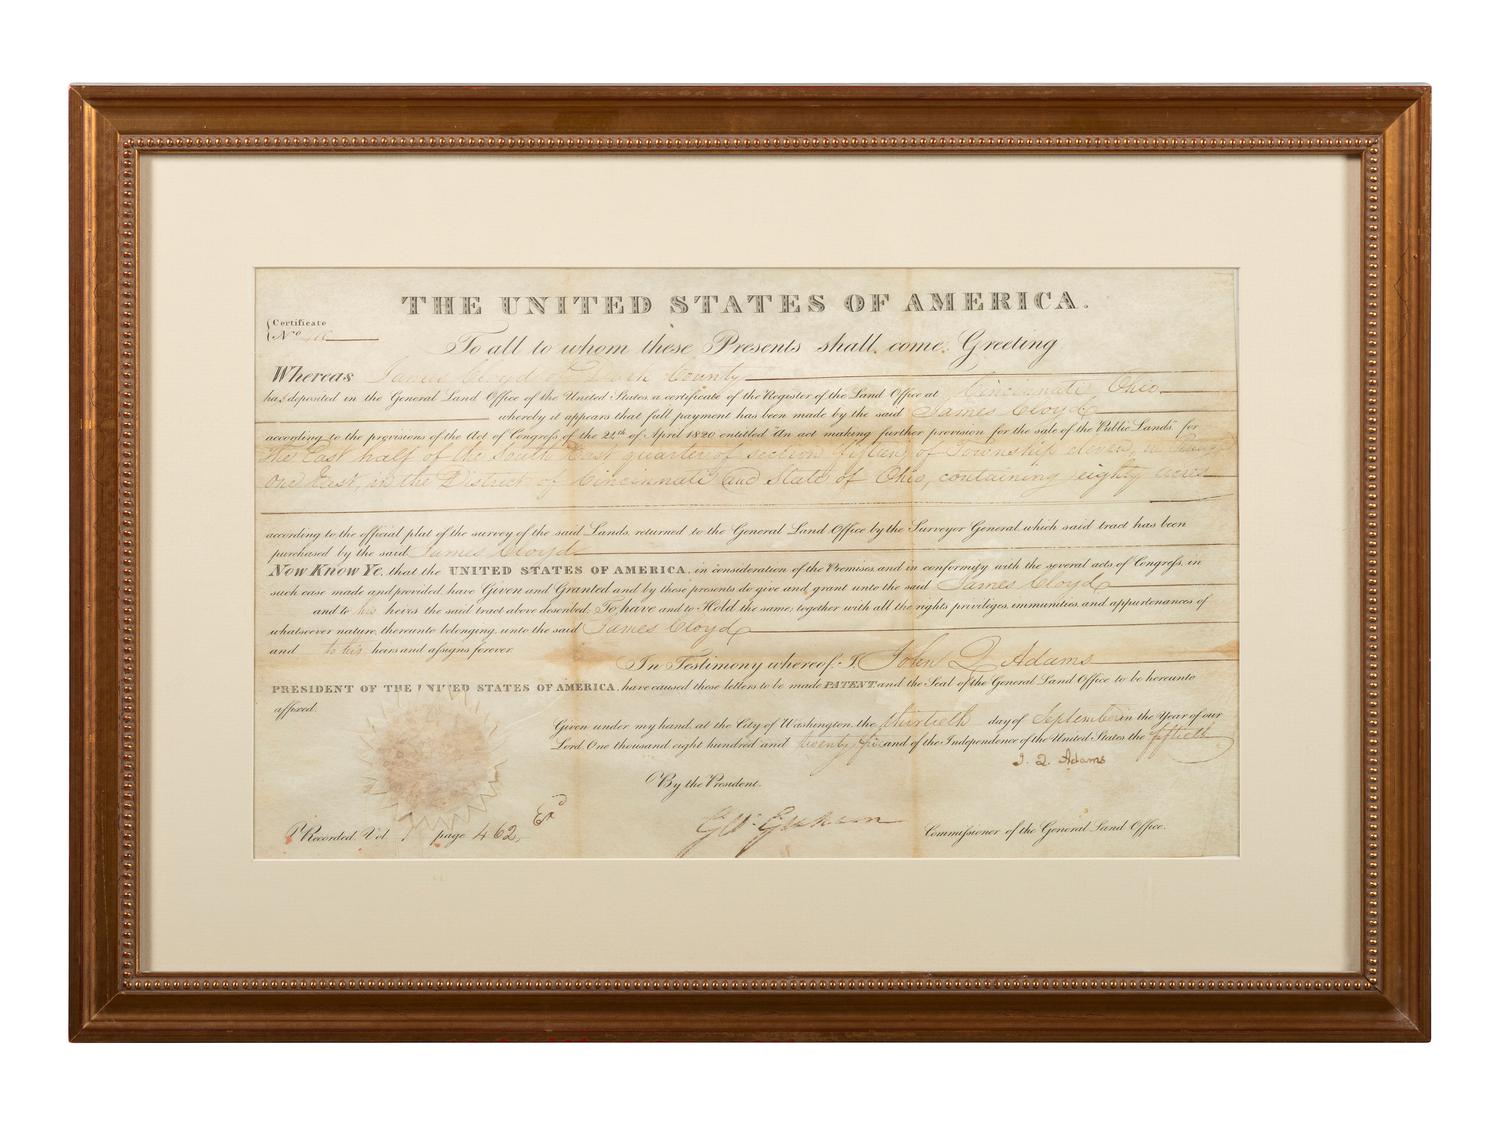 THE UNITED STATES OF AMERICA.
Certificate
No
To all to whom these Presents shall come, Greeting
Whereas James Cloyd of Dark County
has deposited in the General Land Office of the United States, a certificate of the Register of the Land Office at Cincinnati Ohio
whereby it appears that full payment has been made by the said James Cloyd
according to the provisions of the Act of Congress of the 24th of April 1820 entitled "An act making further provision for the sale of the Public Lands," for
the East half of the South East quarter of section fifteen, of Township eleven, in Range
One East, in the District of Cincinnati and State of Ohio, containing eighty acres
according to the official plat of the survey of the said Lands, returned to the General Land Office by the Surveyor General, which said tract has been
purchased by the said James Cloyd
Now Know Ye, that the UNITED STATES OF AMERICA, in consideration of the Premises, and in conformity with the several acts of Congress, in
such case made and provided, have Given and Granted and by these presents do give and grant unto the said James Cloyd
and to his heirs the said tract above described: To have and to Hold the same, together with all the rights, privileges, immunities, and appurtenances of
whatsoever nature, thereunto belonging, unto the said James Cloyd
and to his heirs and assigns forever.
In Testimony whereof, I, John Q Adams
PRESIDENT OF THE UNITED STATES OF AMERICA, have caused these letters to be made PATENT and the Seal of the General Land Office to be hereunto
affixed.
Given under my hand, at the City of Washington, the thirtieth day of September in the Year of our
Lord One thousand eight hundred and twenty five and of the Independence of the United States the fiftieth
J. Q. Adams
By the President.
Geo. Graham Commissioner of the General Land Office.
Recorded, Vol page 462, Exd